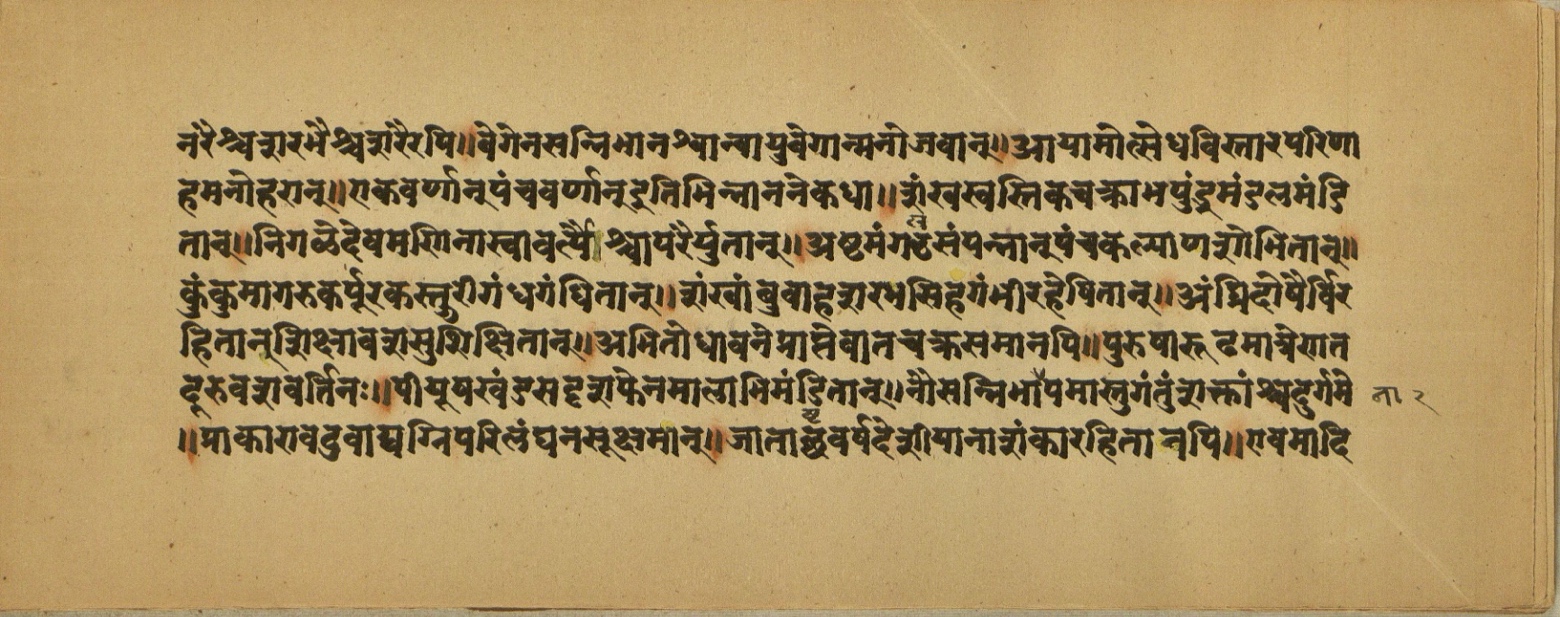 नरैश्चशरभैश्चशरैरपि॥वेगेनसन्निभानश्चान्वायुवेगान्मनोजवान्॥आयामोत्सेधविस्तारपरिणा
हमनोहरान्॥एकवर्णान्पंचवर्णान्इतिभिन्नाननेकधा॥शंखस्वस्तिकचक्राभपुंड्रमंडलमंडि
तान्॥निगळैर्देवमणिनास्वावर्त्यैश्चापरैर्युतान्॥अष्टमंगळसंपन्नान्पंचकल्याणशोभितान्॥
कुंकुमागरुकर्पूरकस्तुरीगंधगंधितान्॥शंखांबुवाहशरभसिहगंभीरहेषितान्॥अंघ्रिदोषैर्विर
हितान्शिक्षावशसुशिक्षितान्॥अभितोधावनेप्राप्तेवातचक्रसमानपि॥पुरुषारूढमात्रेणत
दूरुवशवर्तिनः॥पीयूषखंडसदृशफेनमालाभिमंडितान्॥नौसन्निभांपमास्तुगंतुंशक्तांश्चदुर्गमे
॥प्राकारावदुवाद्यग्निपरिलंघनसूक्ष्मान्॥जाताष्टवर्षदेशीयानाशंकारहितानपि॥एवमादि
ना २